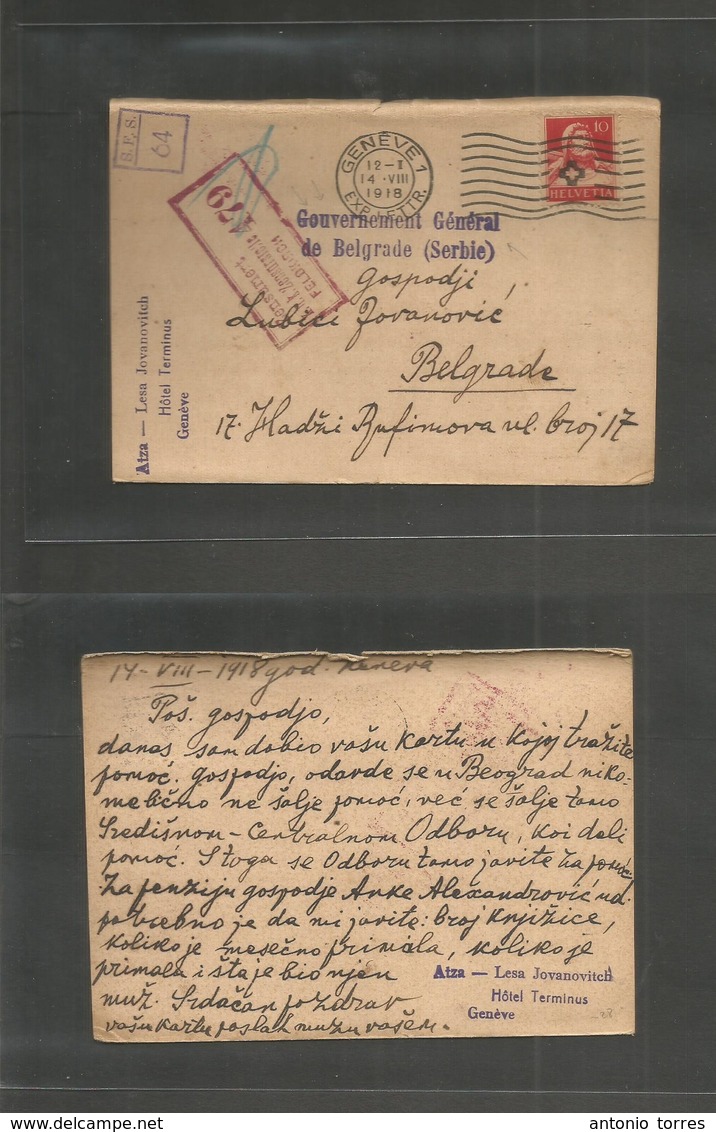 S.F.S.
64
GENÈVE 1
12-I
14.VIII
1918
EXP. LETTR.
10
HELVETIA
479
FELDKIRCH
Gouvernement Général
de Belgrade (Serbie)
Gospodji
Lubici Jovanović
Belgrade
17. Hadži Rufimova ul. broj 17
Atza — Lesa Jovanovitch
Hôtel Terminus
Genève
14-VIII-1918 god. Ženeva
Poš. gospodjo,
danas sam dobio vašu kartu u kojoj tražite
pomoć. gospodjo, odavde se u Beograd niko-
me lično ne šalje pomoć, već se šalje tamo
Središnom-Centralnom Odboru, koi deli
pomoć. Stoga se Odboru tamo javite za pomoć.
Za penziju gospodje Anke Alexandrović
potrebno je da mi javite: broj knjižice,
koliko je mesečno primala, koliko je
primala i šta je bio njen
muž. Srdačan pozdrav
vašu kartu poslah mužu vašem.
Atza — Lesa Jovanovitch
Hôtel Terminus
Genève
www.delcampe.net
antonio torres